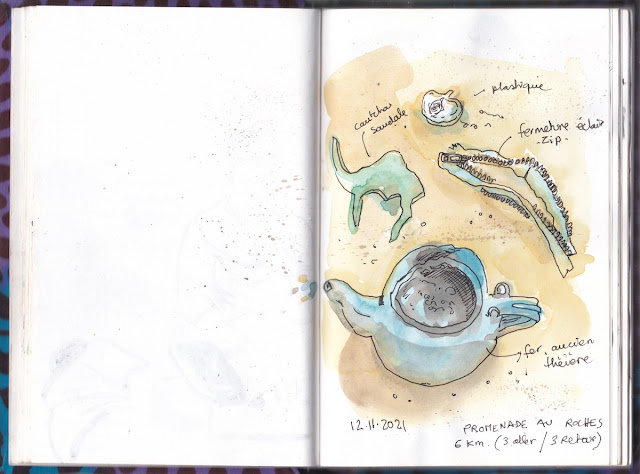 plastique
cautchou
sandale
fermeture éclair
- Zip -
fer, ancien
théière
12.11.2021
PROMENADE AU ROCHES
6 Km. (3 aller / 3 Retour)